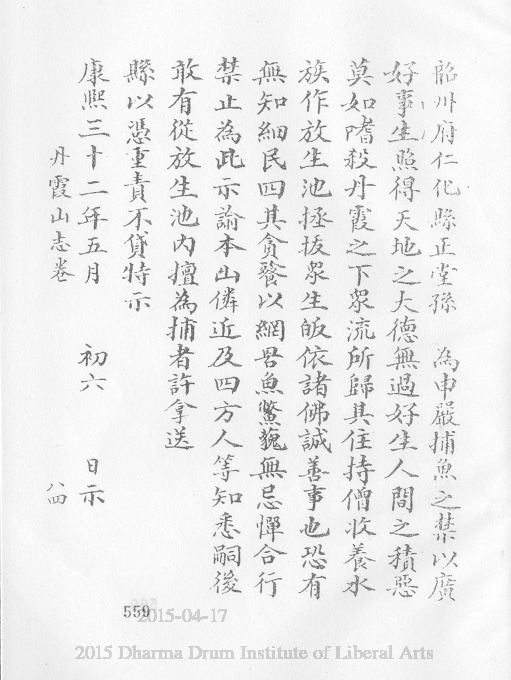 韶州府仁化縣正堂孫　為申嚴捕魚之禁以廣
好事生照得天地之大德無過好生人間之積惡
莫如嗜殺丹霞之下眾流所歸其住持僧收養水
族作放生池拯拔眾生皈依諸佛誠善事也恐有
無知細民四其貪饕以網罟魚鱉藐無忌憚合行
禁止為此示諭本山隣近及四方人等知悉嗣後
敢有從放生池內擅為捕者許拿送
縣以憑重責不貸特示
康熙三十二年五月　初六　日示
丹霞山志卷　八四
559
2015-04-17
2015 Dharma Drum Institute of Liberal Arts